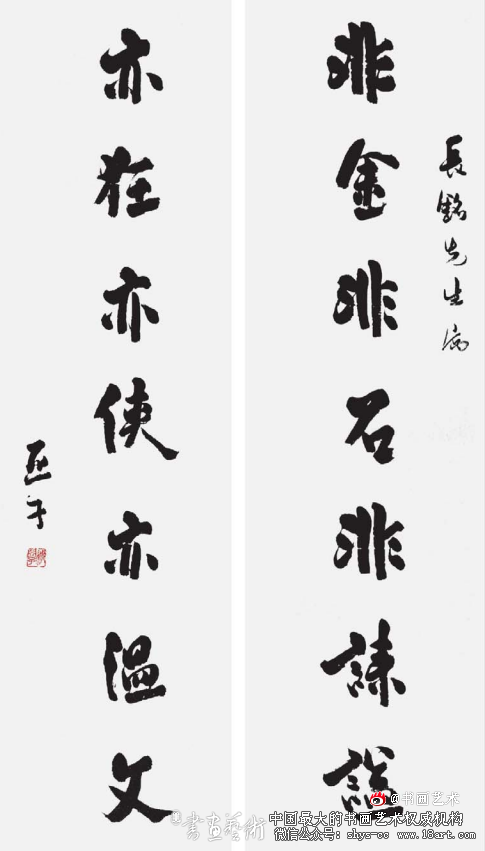 長
先生
非金非石非誄諡
亦狂亦侠亦温文
亞子
@书画艺术
書画藝術
中国最大的书画艺术权威机构
微信公众号: shys-cc www.18art.com